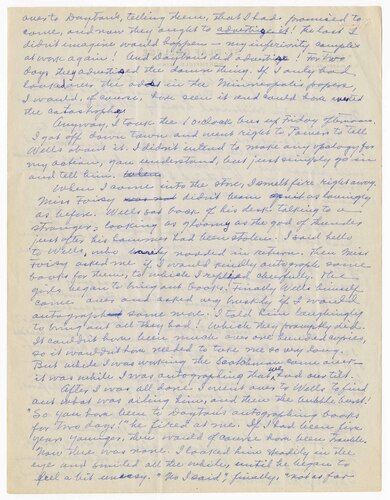 over to Dayton's, telling them, that I had promised to
come, and now they ought to advertise it! The last I
didn't imagine would happen — my inferiority complex
at work again! And Dayton's did advertise! For two
days they advertised the damn thing. If I only had
looked over the ads in the Minneapolis papers,
I would, of course, have seen it and could have
the catastrophe.
Anyway, I took the 1 o'clock bus up Friday afternoon.
I got off down town and went right to Powers to tell
Wells about it. I didn't intend to make any apology for
my action, you understand, but just simply go in
and tell him.
When I came into the store, I smelt fire right away.
Miss Foissy didn't beam as lovingly
as before. Wells sat back of his desk talking to a
stranger; looking as gloomy as the god of thunder
just after his hammer had been stolen. I said hello
to Wells, who barely nodded in return. Then Miss
Foissy asked me if I would kindly autograph some
books for them, to which I replied cheerfully, the
girls began to bring out books. Finally Wells himself
came over and asked very huskily if I would
autograph some more. I told him laughingly
to bring out all they had! Which they promptly did.
It couldn't have been much over one hundred copies,
so it wouldn't have needed to take me so very long.
But while I was working the
it was while I was autographing that we had our tilt.
After I was all done I went over to Wells to find
out what was ailing him, and then the bubble burst!
"So you have been to Dayton's autographing books
for two days!" he fired at me. If I had been five
years younger, there would of course have been trouble.
Now there was none. I looked him steadily in the
eye and smiled all the while, until he began to
feel a bit uneasy. "No I said", finally, "not as far